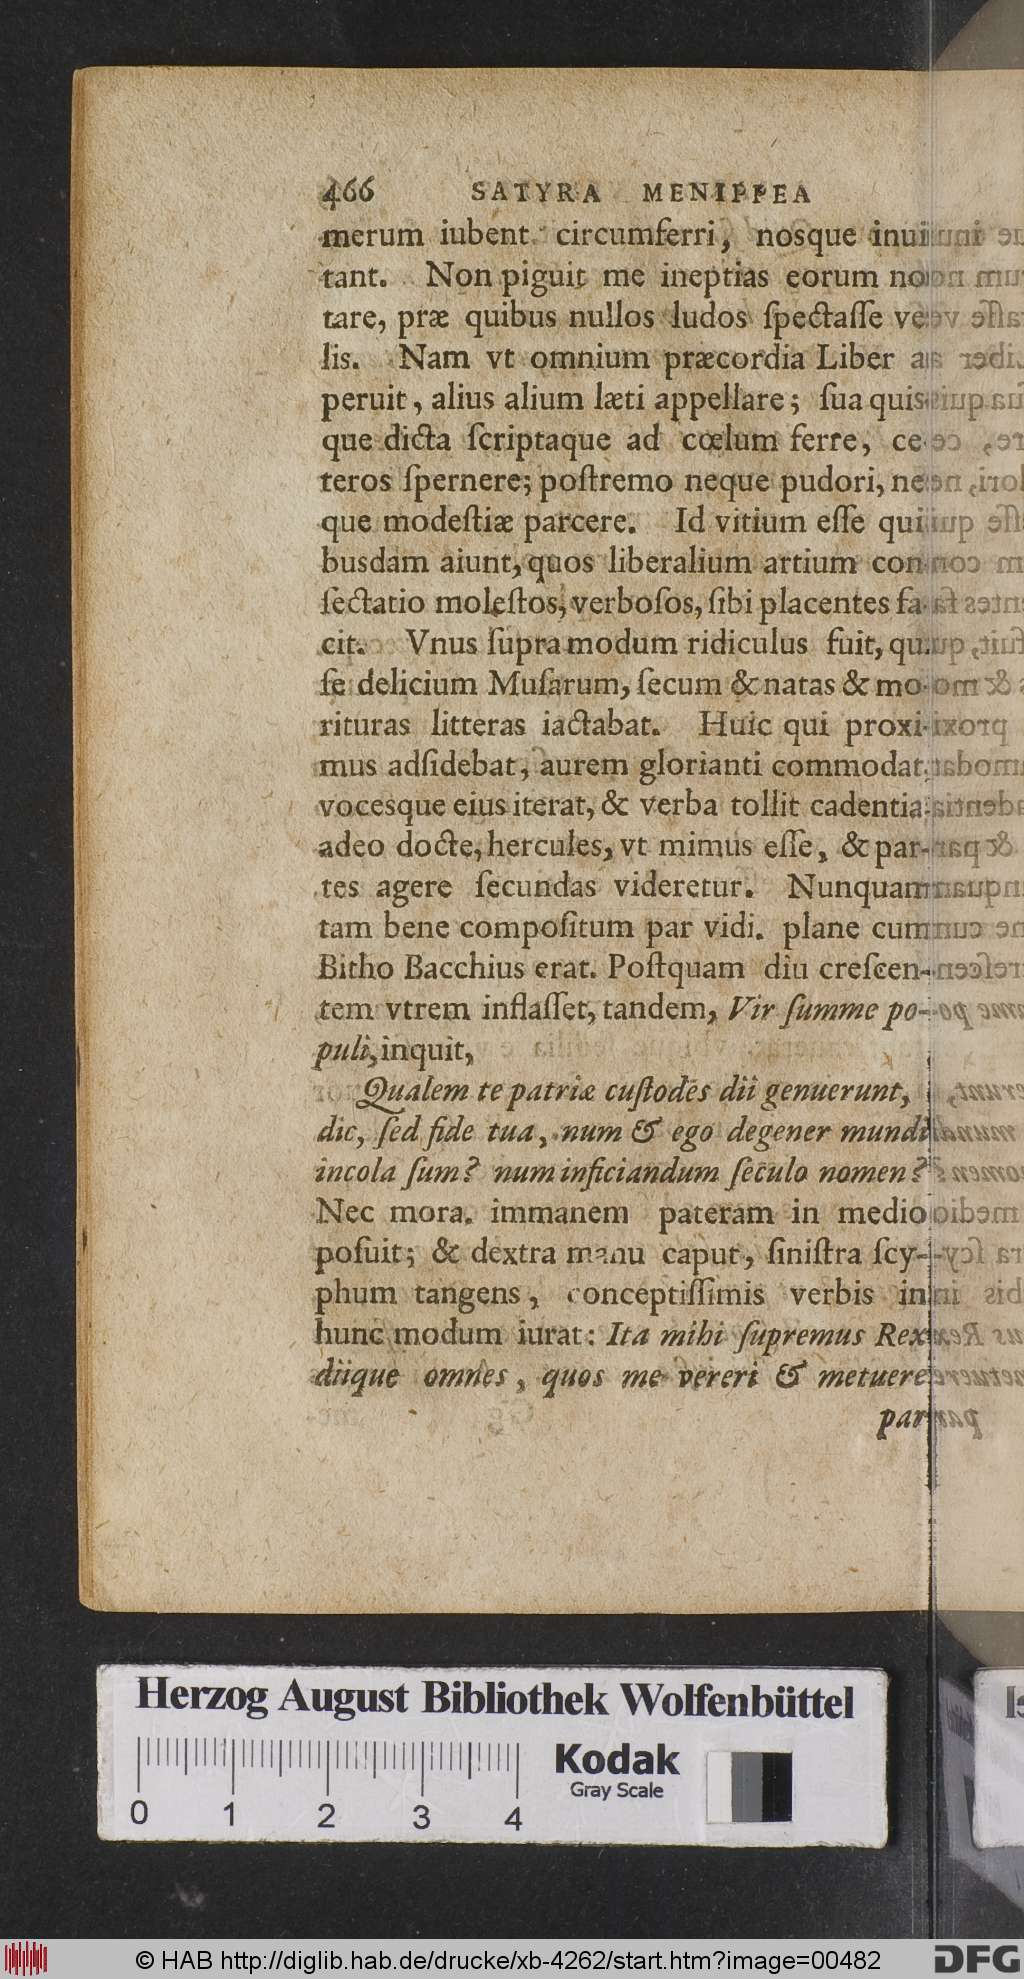 466 SATYRA MENIPPEA
merum iubent circumferri, nosque inui
tant. Non piguit me ineptias eorum no
tare, præ quibus nullos ludos ſpectaſſe ve
lis. Nam vt omnium præcordia Liber a
peruit, alius alium læti appellare; ſua quiſ
que dicta ſcriptaque ad cœlum ferre, ce
teros ſpernere; poſtremo neque pudori, ne
que modeſtiæ parcere. Id vitium eſſe qui
busdam aiunt, quos liberalium artium con
ſectatio moleſtos, verboſos, ſibi placentes fa
cit. Vnus ſupra modum ridiculus fuit, qui
ſe delicium Muſarum, ſecum & natas & mo
rituras litteras iactabat. Huic qui proxi-
mus adſidebat, aurem glorianti commodat,
vocesque eius iterat, & verba tollit cadentia:
adeo docte, hercules, vt mimus eſſe, & par-
tes agere ſecundas videretur. Nunquam
tam bene compoſitum par vidi. plane cum
Bitho Bacchius erat. Poſtquam diu creſcen-
tem vtrem inflaſſet, tandem, Vir ſumme po-
puli, inquit,
Qualem te patriæ cuſtodes dii genuerunt,
dic, ſed fide tua, num & ego degener mundi
incola ſum? num inficiandum ſeculo nomen?
Nec mora. immanem pateram in medio
poſuit; & dextra manu caput, ſiniſtra ſcy-
phum tangens, conceptiſſimis verbis in
hunc modum iurat: Ita mihi ſupremus Rex
diique omnes, quos me vereri & metuere
par
Herzog August Bibliothek Wolfenbüttel
Kodak
Gray Scale
0 1 2 3 4
© HAB http://diglib.hab.de/drucke/xb-4262/start.htm?image=00482
DFG